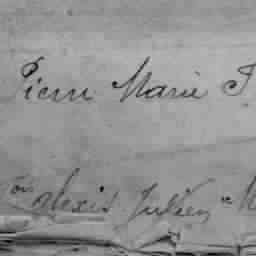 Pierre Marie J
Con alexis Julien "M